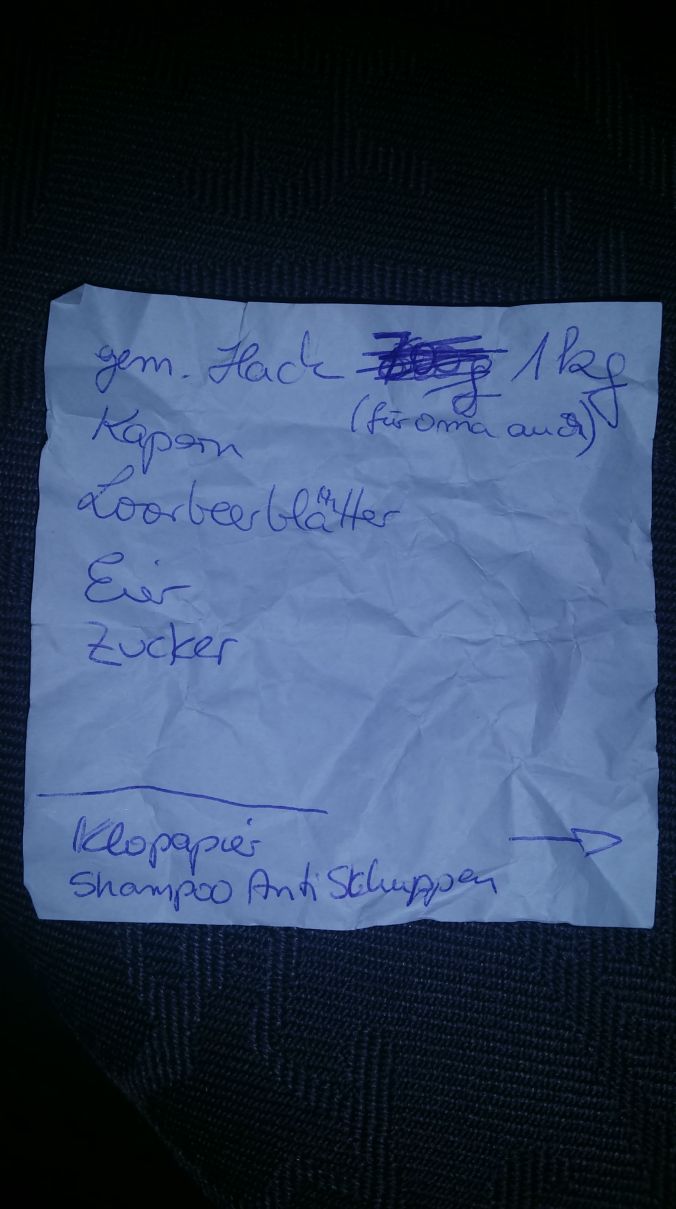 gem. Hack 1kg
(für Oma auch)
Kapern
Loorbeerblätter
Eier
Zucker
Klopapier
Shampoo Anti Schuppen